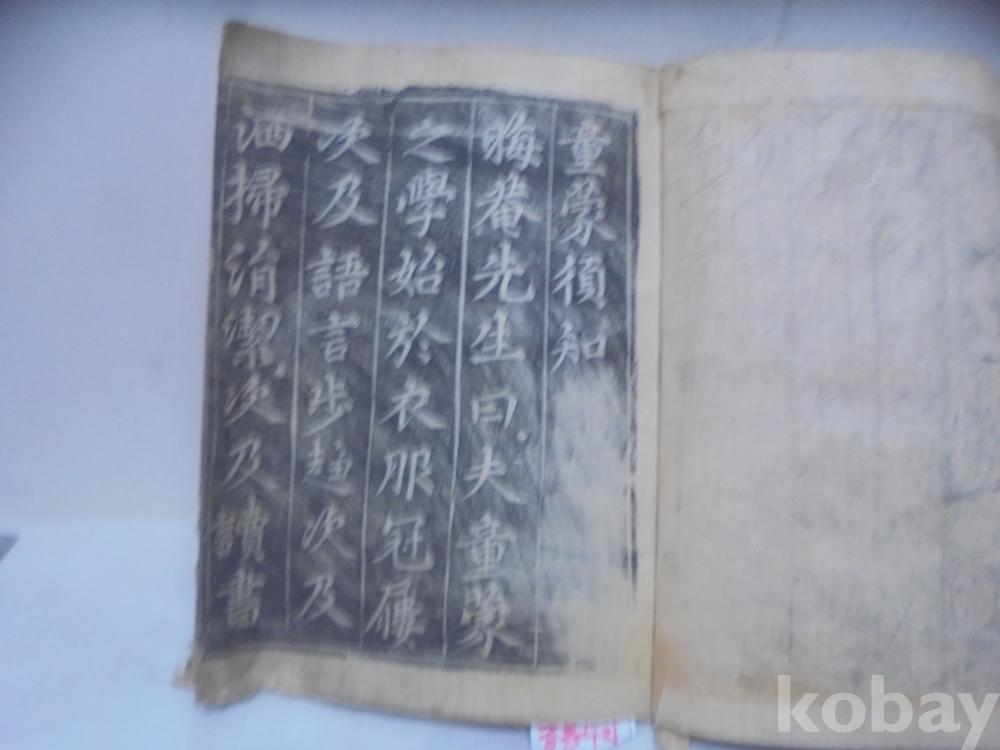 童蒙須知
晦菴先生曰夫童蒙
之學始於衣服冠屨
次及語言步趨次及
洒掃涓潔次及讀書
kobay